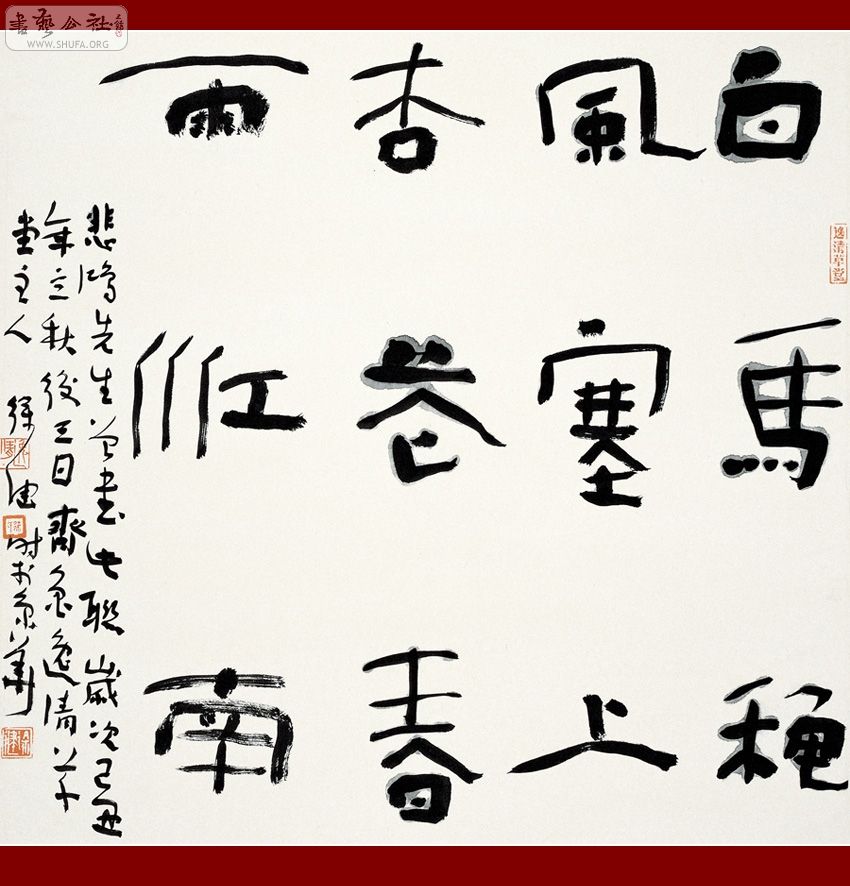 書藝公社
WWW.SHUFA.ORG
逸清草堂
白馬穐
風塞上
杏花春
雨江南
悲鴻先生曾書此聯歲次己丑
年立秋後三日齊魯逸清草
堂主人 徐 時於京華